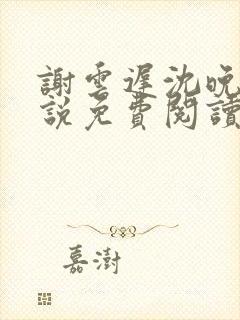 謝雲遲沈晚
說免費閱讀
嘉澍